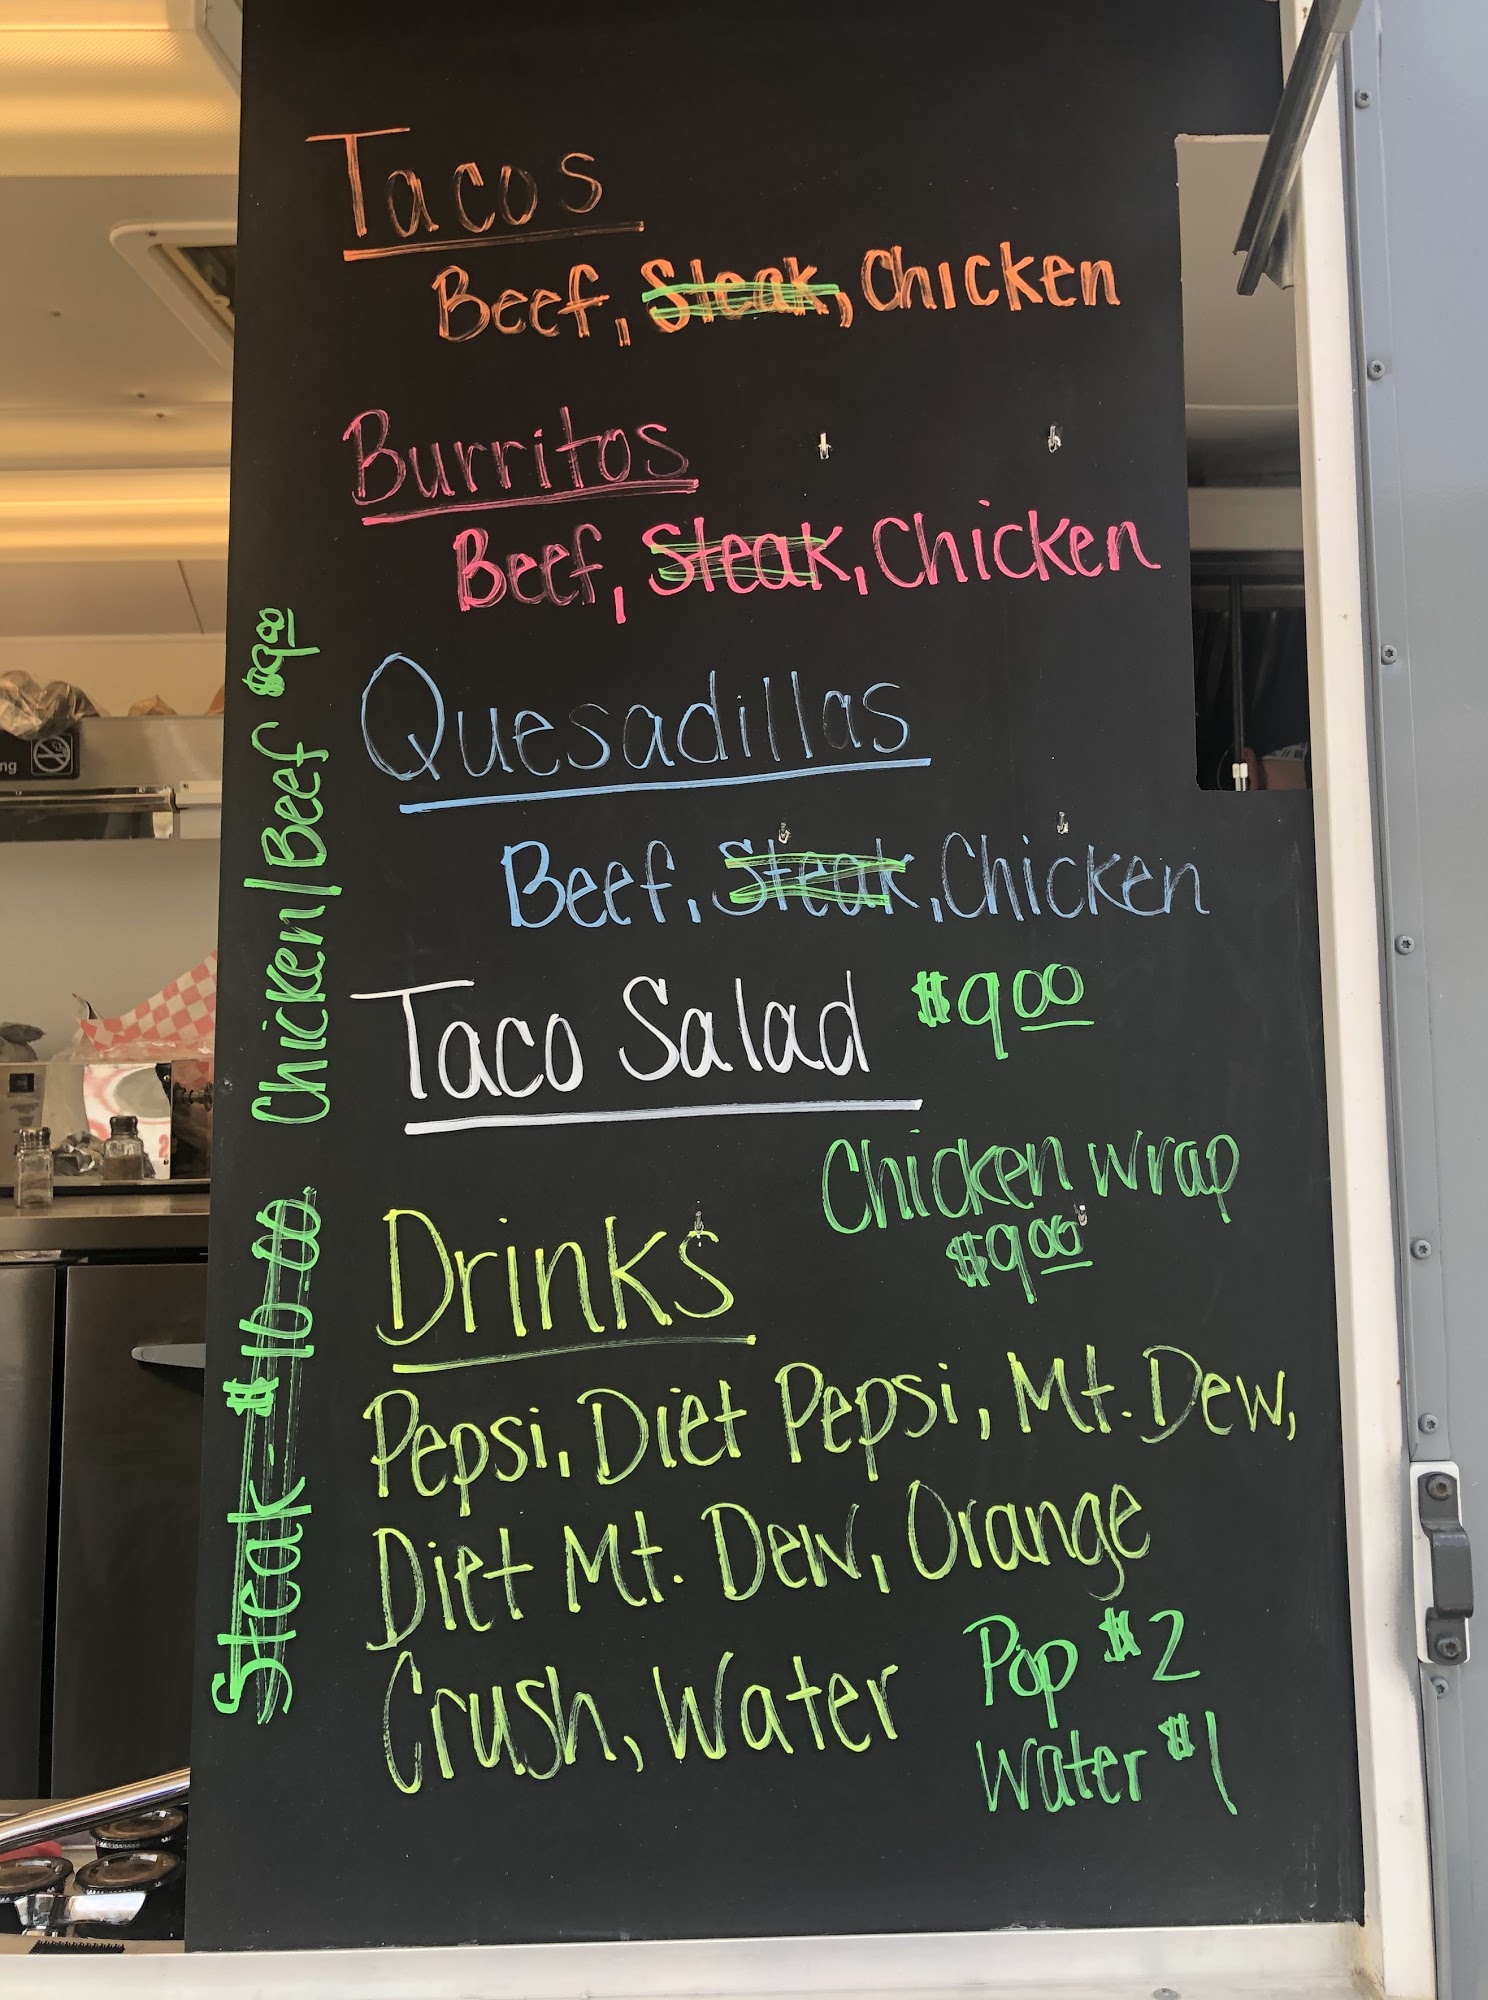 Tacos
Beef, Steak, Chicken
Burritos
Beef, Steak, Chicken
Quesadillas
Beef, Steak, Chicken
Taco Salad $9.00
Chicken wrap
$9.00
Drinks
Pepsi, Diet Pepsi, Mt. Dew,
Diet Mt. Dew, Orange
Crush, Water
Pop $2
Water $1
Steak - $10.00 Chicken/Beef $9.00
ng